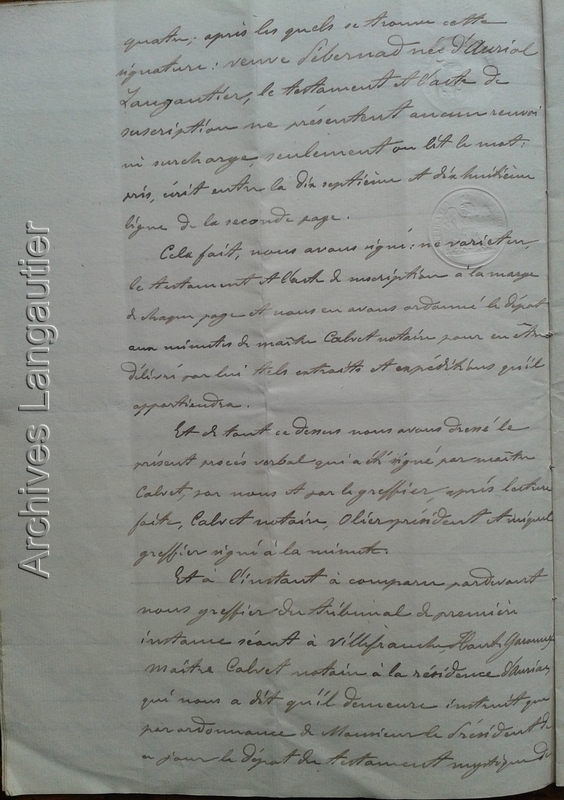 quatre; après les quels se trouve cette
signature: veuve Pebernad née d'Auriol
Langautier, le testament et l'acte de
suscription ne présentent aucun renvoi
ni surcharge seulement on lit le mot:
pris, écrit entre la dix septième et dix huitième
ligne de la seconde page.
Cela fait, nous avons signé: ne varietur,
le testament et l'acte de suscription à la marge
de chaque page et nous en avons ordonné le dépôt
aux minutes de maître Calvet notaire pour en être
délivré par lui tels extraits et expéditions qu'il
appartiendra.
Et de tout ce dessus nous avons dressé le
présent procès verbal qui a été signé par maître
Calvet, par nous et par le greffier, après lecture
faite, Calvet notaire, Olier président et miquel
greffier signé à la minute.
Et à l'instant à comparu pardevant
nous greffier du tribunal de première
instance séant à villefranche Haute Garonne
Maître Calvet notaire à la résidence d'Auriac
qui nous a dit qu'il demeure instruit que
par ordonnance de Monsieur le Président de
ce jour le dépôt du testament mystique de
Archives Langautier